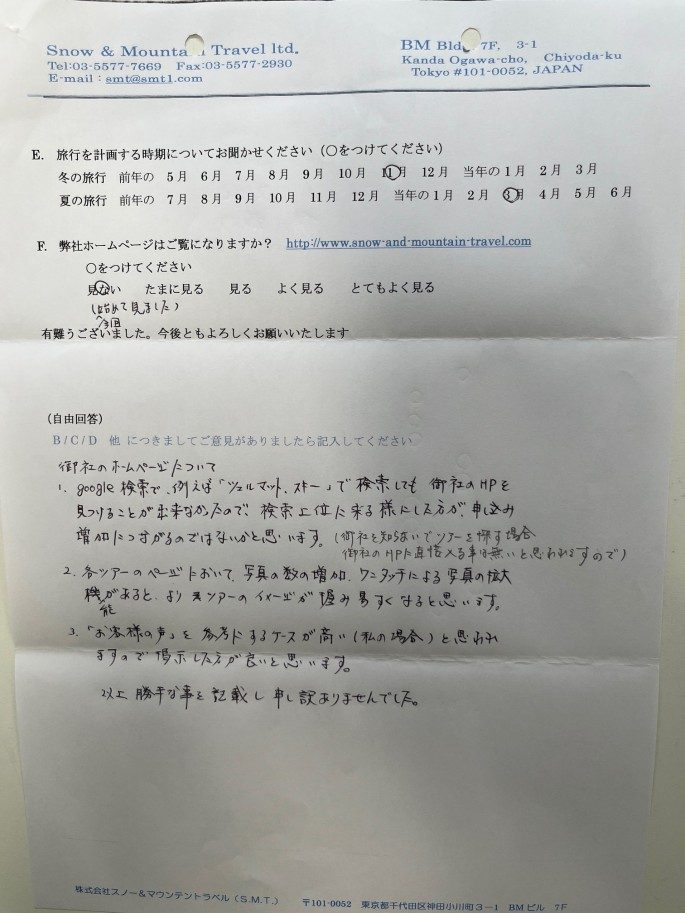 Snow & Mountain Travel ltd.
Tel:03-5577-7669 Fax:03-5577-2930
E-mail : smt@smt1.com
BM Bld. 7F, 3-1
Kanda Ogawa-cho, Chiyoda-ku
Tokyo #101-0052, JAPAN
E. 旅行を計画する時期についてお聞かせください（○をつけてください）
冬の旅行 前年の 5月 6月 7月 8月 9月 10月 11月 12月 当年の1月 2月 3月
夏の旅行 前年の 7月 8月 9月 10月 11月 12月 当年の1月 2月 3月 4月 5月 6月
F. 弊社ホームページはご覧になりますか？ http://www.snow-and-mountain-travel.com
○をつけてください
見ない たまに見る 見る よく見る とてもよく見る
(始めて見ました)
今回
有難うございました。今後ともよろしくお願いいたします
（自由回答）
B/C/D 他 につきましてご意見がありましたら記入してください
御社のホームページについて
1. google 検索で、例えば「ツェルマット、スキー」で検索しても 御社のHPを
見つけることが出来なかったので、検索上位に来る様にした方が、申込み
増加につながるのではないかと思います。(御社を知らないでツアーを探す場合
御社のHPに直接入る事は無いと思われますので)
2. 各ツアーのページにおいて、写真の数の増加、ワンタッチによる写真の拡大
機能があると、より ツアーのイメージが掴み易すくなると思います。
3. 「お客様の声」を参考にするケースが高い(私の場合)と思われ
ますので掲示した方が良いと思います。
以上、勝手な事を記載し申し訳ありませんでした。
株式会社スノー＆マウンテントラベル（S.M.T.） 〒101-0052 東京都千代田区神田小川町3－1 BMビル 7F